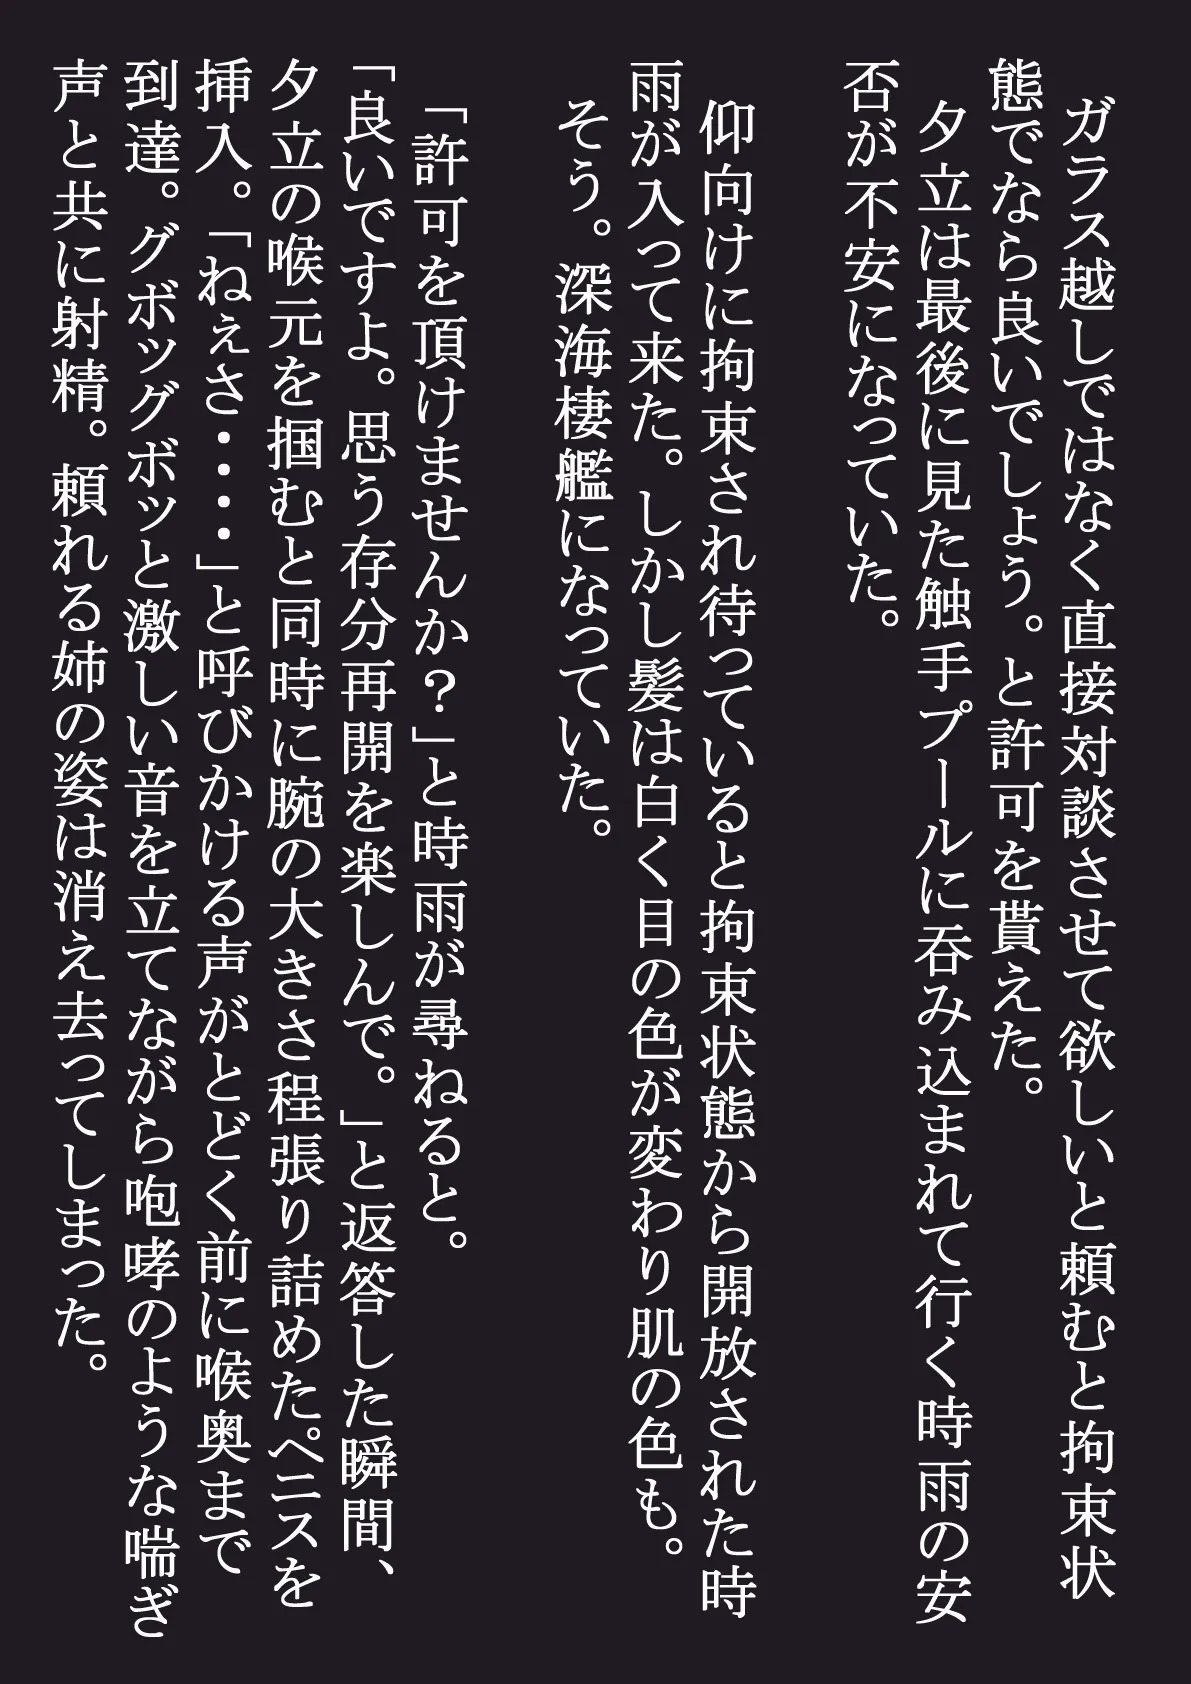 ガラス越しではなく直接対談させて欲しいと頼むと拘束状
態でなら良いでしょう。と許可を貰えた。
夕立は最後に見た触手プールに呑み込まれて行く時雨の安
否が不安になっていた。
仰向けに拘束され待っていると拘束状態から開放された時
雨が入って来た。しかし髪は白く目の色が変わり肌の色も。
そう。深海棲艦になっていた。
「許可を頂けませんか？」と時雨が尋ねると。
「良いですよ。思う存分再開を楽しんで。」と返答した瞬間、
夕立の喉元を掴むと同時に腕の大きさ程張り詰めたペニスを
挿入。「ねぇさ・・・・」と呼びかける声がとどく前に喉奥まで
到達。グボッグボッと激しい音を立てながら咆哮のような喘ぎ
声と共に射精。頼れる姉の姿は消え去ってしまった。